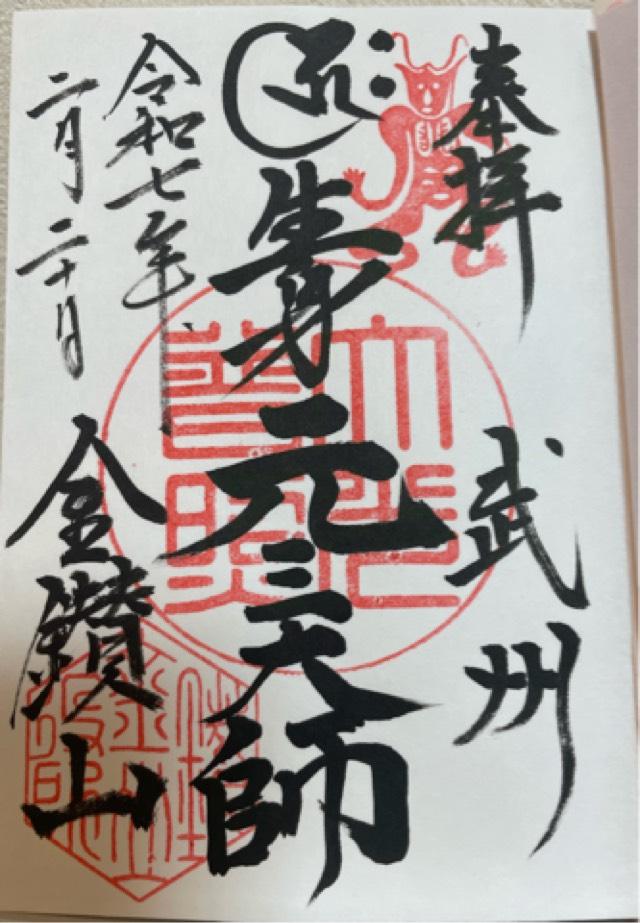 奉拝
武州
生身元三大師
令和七年
二月二十日
金鑚山